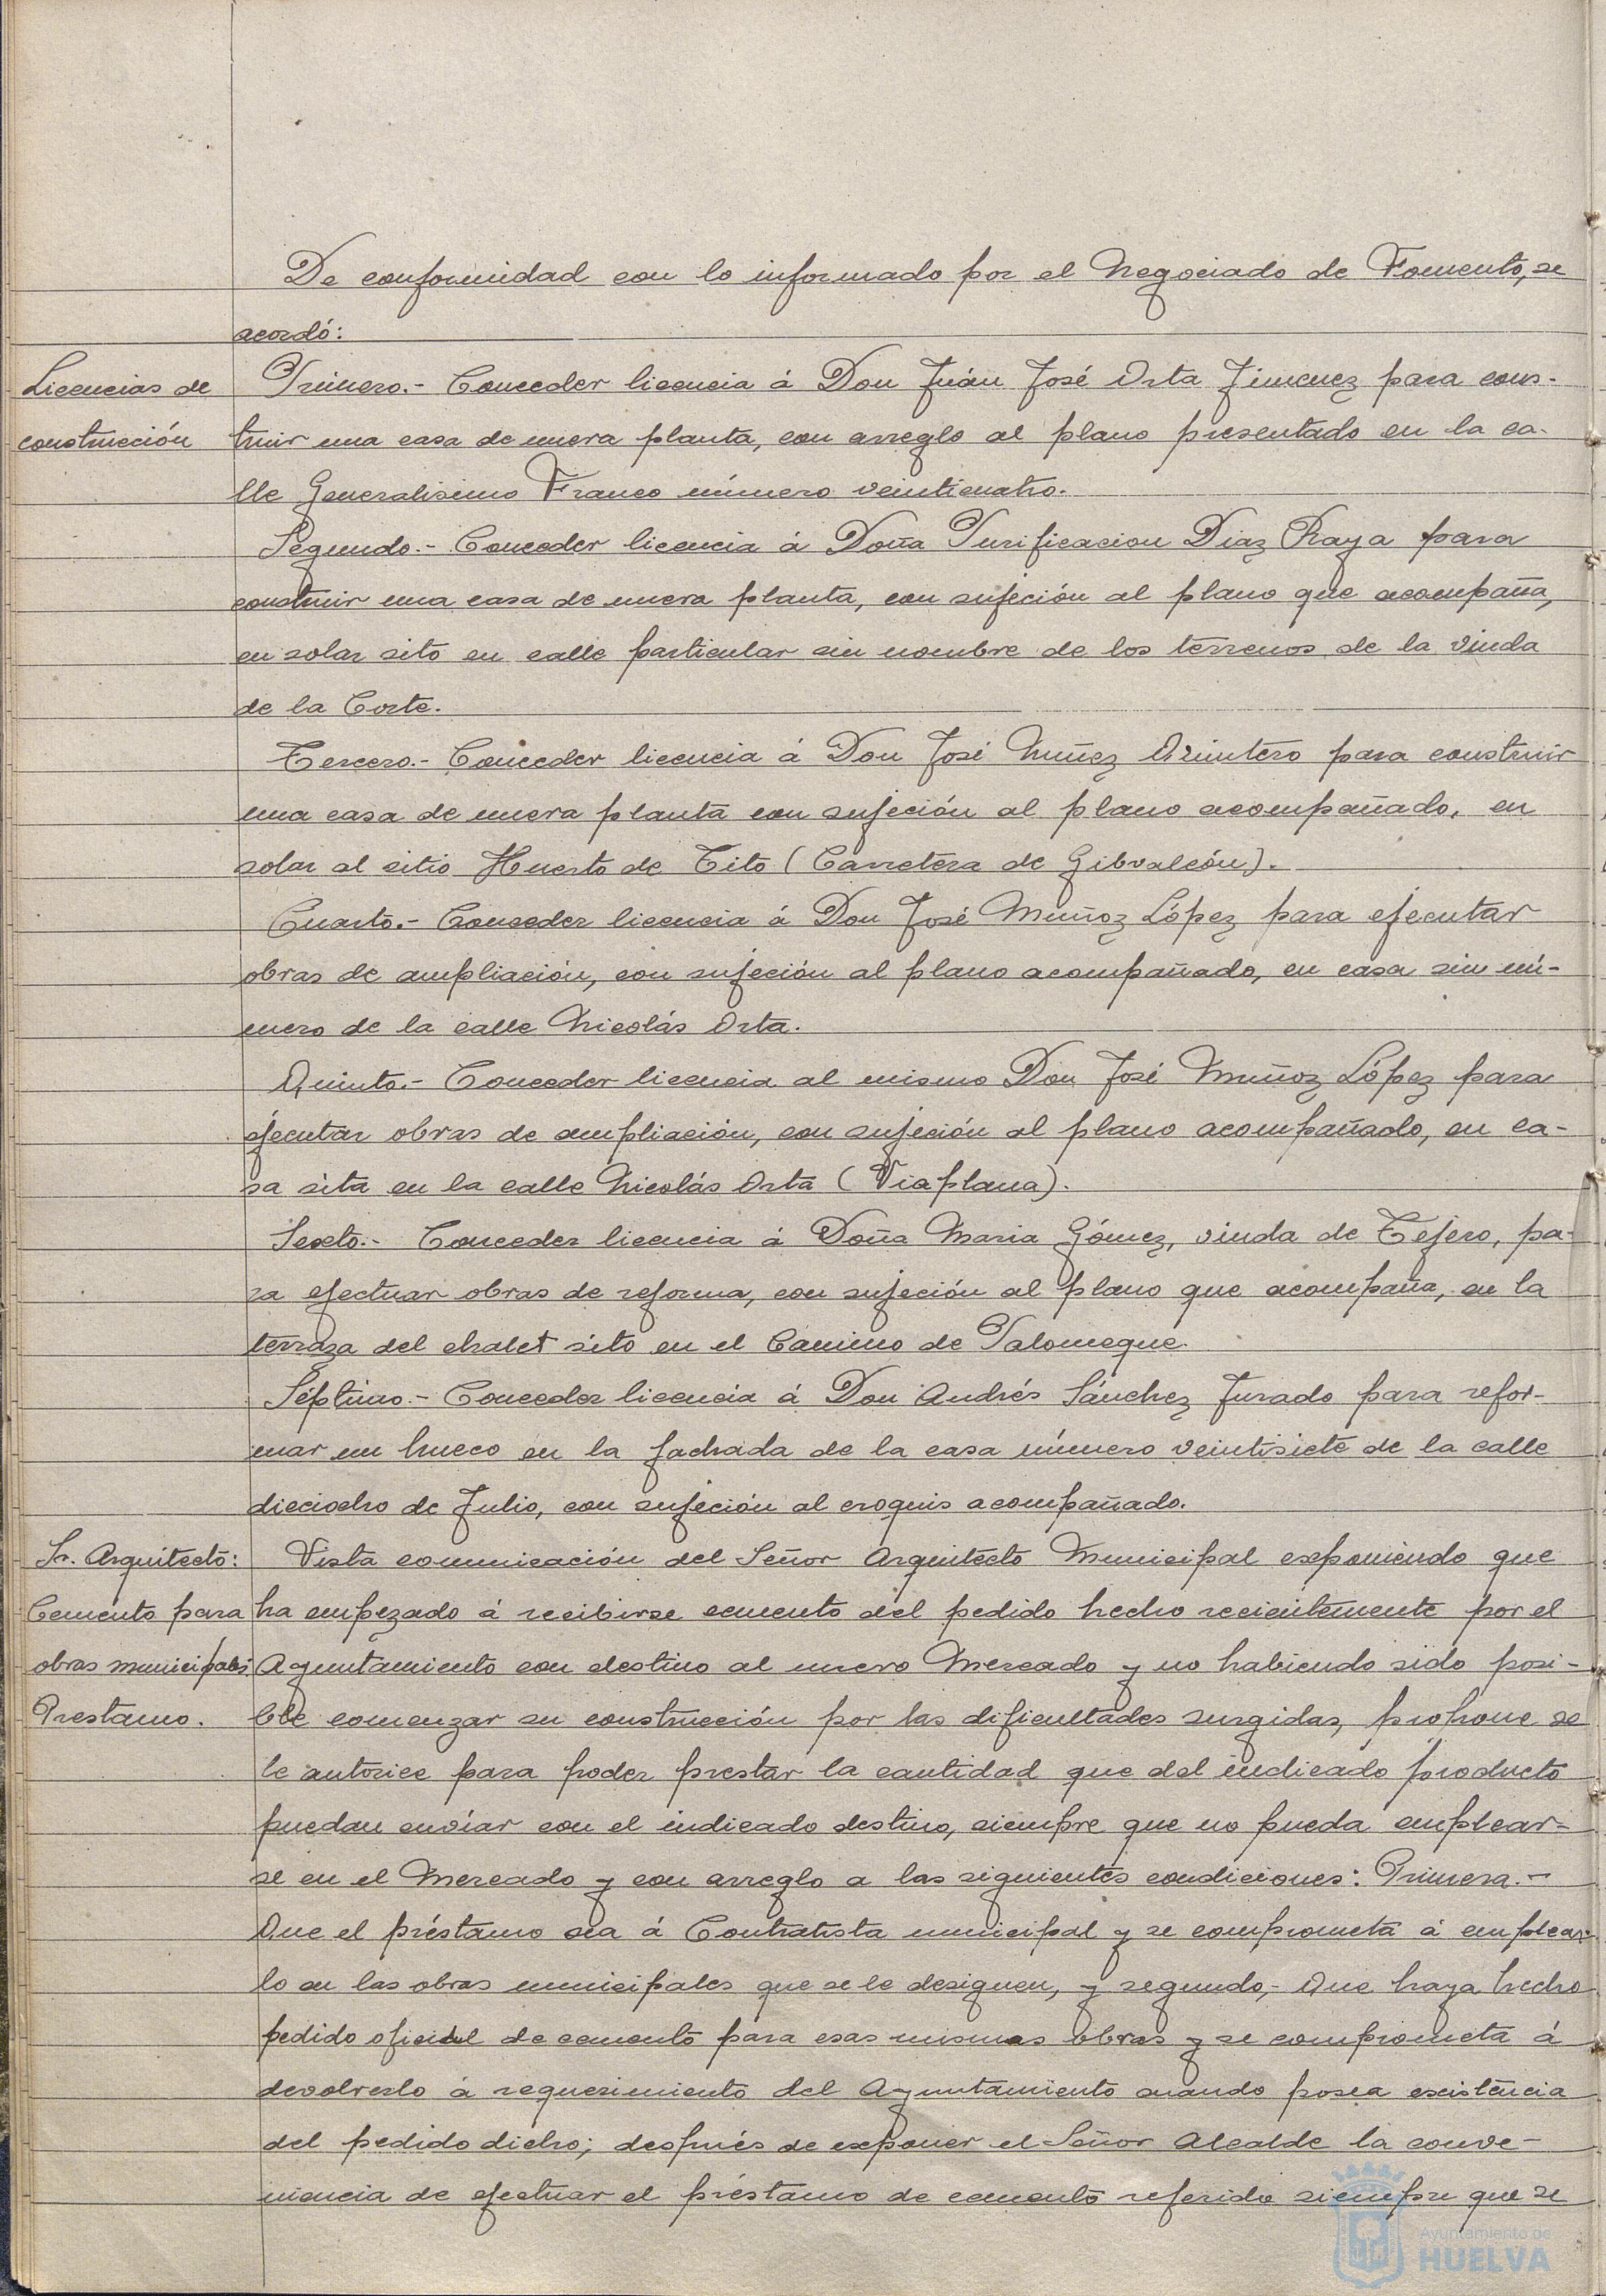 De conformidad con lo informado por el Negociado de Fomento, se
acordó:
Licencias de
construcción
Primero.- Conceder licencia á Don Juán José Orta Jimenez para cons-
truir una casa de nueva planta, con arreglo al plano presentado en la ca-
lle Generalisimo Franco número veinticuatro.
Segundo.- Conceder licencia á Doña Purificacion Diaz Raya para
construir una casa de nueva planta, con sujeción al plano que acompaña,
en solar sito en calle particular sin nombre de los terrenos de la viuda
de la Corte.
Tercero.- Conceder licencia á Don José Nuñez Quintero para construir
una casa de nueva planta con sujeción al plano acompañado, en
solar al sitio Huerto de Tito (Carretera de Gibraleón).
Cuarto.- Conceder licencia á Don José Muñoz López para ejecutar
obras de ampliación, con sujeción al plano acompañado, en casa sin nú-
mero de la calle Nicolás Orta.
Quinto.- Conceder licencia al mismo Don José Muñoz López para
ejecutar obras de ampliación, con sujeción al plano acompañado, en ca-
sa sita en la calle Nicolás Orta (Viaplana).
Sexto.- Conceder licencia á Doña Maria Gómez, viuda de Tejero, pa-
ra efectuar obras de reforma, con sujeción al plano que acompaña, en la
terraza del chalet sito en el Camino de Palomeque.
Séptimo.- Conceder licencia á Don Andrés Sánchez Jurado para refor-
mar un hueco en la fachada de la casa número veintisiete de la calle
dieciocho de Julio, con sujeción al croquis acompañado.
Sr. Arquitecto:
Cemento para
obras municipales.
Prestamo.
Vista comunicación del Señor Arquitecto Municipal exponiendo que
ha empezado á recibirse cemento del pedido hecho recientemente por el
Ayuntamiento con destino al nuevo Mercado y no habiendo sido posi-
ble comenzar su construcción por las dificultades surgidas, propone se
le autorice para poder prestar la cantidad que del indicado producto
puedan envíar con el indicado destino, siempre que no pueda emplear-
se en el Mercado y con arreglo a las siguientes condiciones: Primera.-
Que el préstamo sea á Contratista municipal y se comprometa á emplear-
lo en las obras municipales que se le designen, y segundo,- Que haya hecho
pedido oficial de cemento para esas mismas obras y se comprometa á
devolverlo á requerimiento del Ayuntamiento cuando posea existencia
del pedido dicho; después de exponer el Señor Alcalde la conve-
niencia de efectuar el préstamo de cemento referido siempre que se
Ayuntamiento de
HUELVA